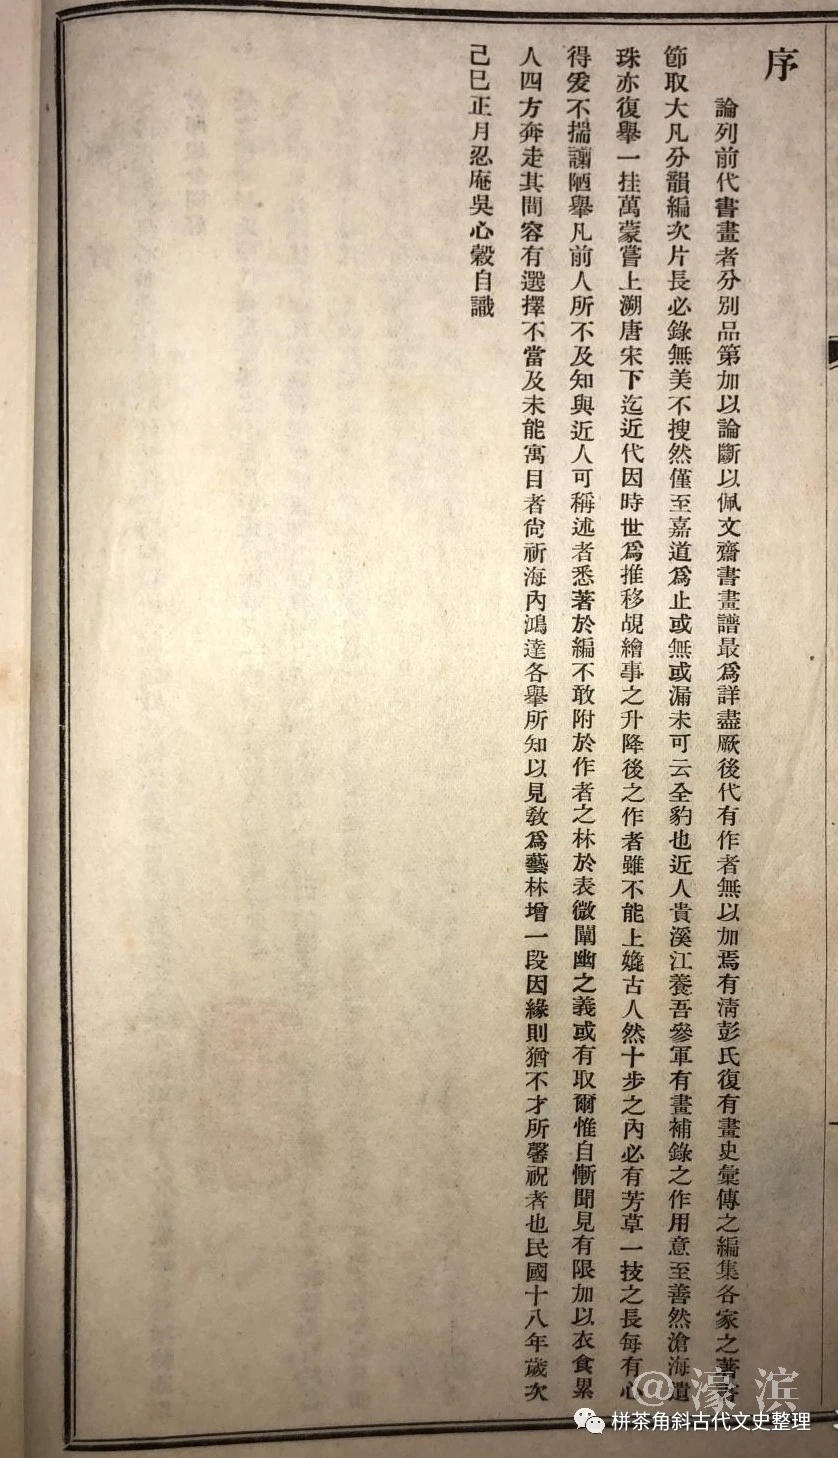 序
論列前代書畫者分別品第加以論斷以佩文齋書畫譜最爲詳盡厥後代有作者無以加焉有淸彭氏復有畫史彙傳之編集各家之著書
節取大凡分韻編次片長必錄無美不搜然僅至嘉道爲止或無或漏未可云全豹也近人貴溪江養吾參軍有畫補錄之作用意至善然滄海遺
珠亦復舉一挂萬蒙嘗上溯唐宋下迄近代因時世爲推移覘繪事之升降後之作者雖不能上媲古人然十步之內必有芳草一技之長每有心
得爰不揣譾陋舉凡前人所不及知與近人可稱述者悉著於編不敢附於作者之林於表微闡幽之義或有取爾惟自慚聞見有限加以衣食累
人四方奔走其間容有選擇不當及未能寓目者尙祈海內鴻達各舉所知以見敎爲藝林增一段因緣則猶不才所馨祝者也民國十八年歲次
己巳正月忍庵吳心穀自識
@濠滨
栟茶角斜古代文史整理